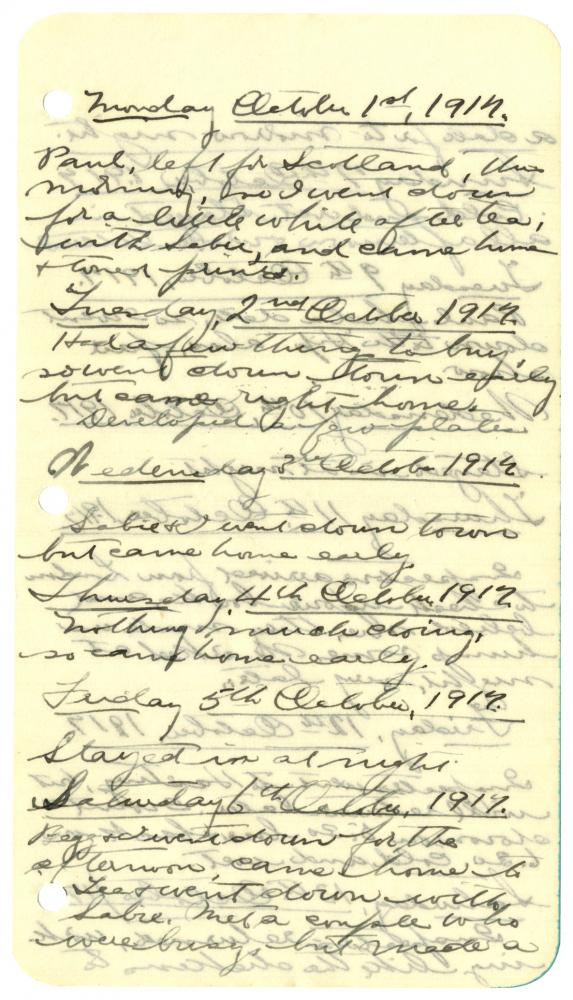 Monday October 1st, 1917.
Paul, left for Scotland, this
morning, so I went down
for a little while after tea,
with Sabie, and came home
& toned prints.
Tuesday, 2nd October 1917.
Had a few things to buy,
so went down town early
but came right home.
Developed a few plates
Wednesday 3rd October 1917.
Sabie & I went down town
but came home early.
Thursday 4th October, 1917.
Nothing much doing,
so came home early.
Friday 5th October, 1917.
Stayed in at night.
Saturday 6th October, 1917.
& I went down for the
afternoon, came home to
Tea & went down with
Sabie. Met a couple who
were busy, but made a